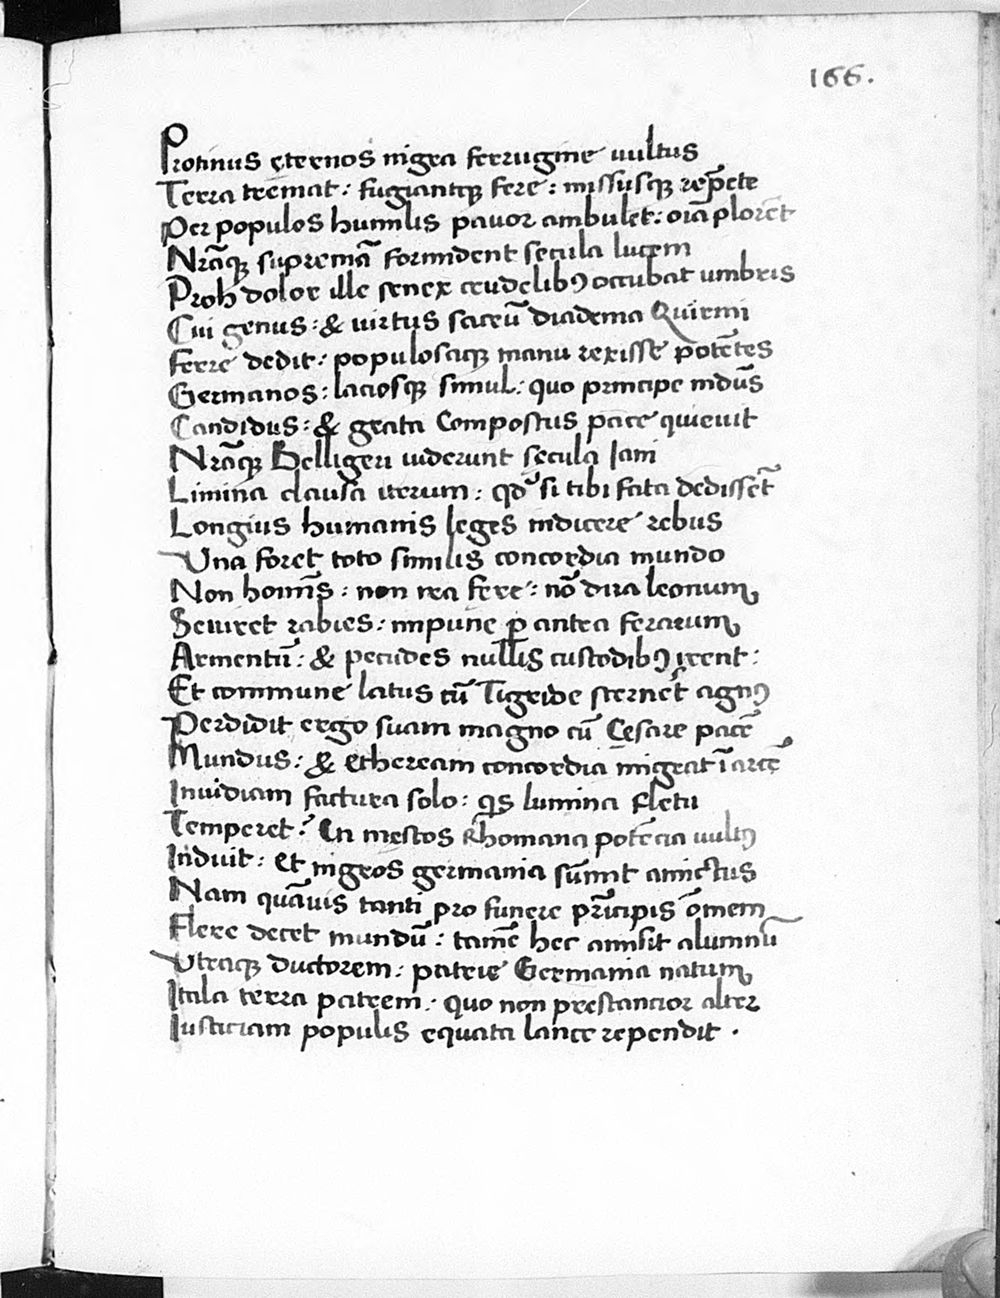 166.
Protinus ęternos nigra ferrugine uultus
Terra tremat: fugiantq; fere: missusq; rep̃ete
Per populos humilis pauor ambulet: oĩa plorẽt
Nrãq; supremã formident secula lucem
Proh dolor ille senex crudelibꝰ occubat umbris
Cui genus: & uirtus sacrũ diadema Quirini
Ferre dedit: populosaq; manu rexisse potẽtes
Germanos: laciosq; simul: quo principe mdũs
Candidus: & grata Compostus pace quieuit
Nrãq; Belligeri uiderunt secula Iani
Limina clausa iterum: qđ si tibi fata dedissẽt
Longius humanis leges indicere rebus
Una foret toto similis concordia mundo
Non homĩs: non rea fere: nõ dira leonum
Seuiret rabies: impune ꝑ antra ferarum
Armentũ: & pecudes nullis custodibꝰ irent:
Et commune latus cũ Tigride sternẽt agnꝰ
Perdidit ergo suam magno cũ Cesare pacẽ
Mundus: & etheream concordia migrat ĩ arcẽ
Inuidiam factura solo: qs lumina fletu
Temperet? En mestos Rhomana potẽcia uultꝰ
Induit: et nigros germania sũmit amictus
Nam quãuis tanti pro funere prĩcipis õmem
Flere decet mundũ: tamẽ hec amisit alumnũ
Utraq; ductorem: patrie Germania natum
Itala terra patrem: quo non prestancior alter
Iusticiam populis equata lance rependit .